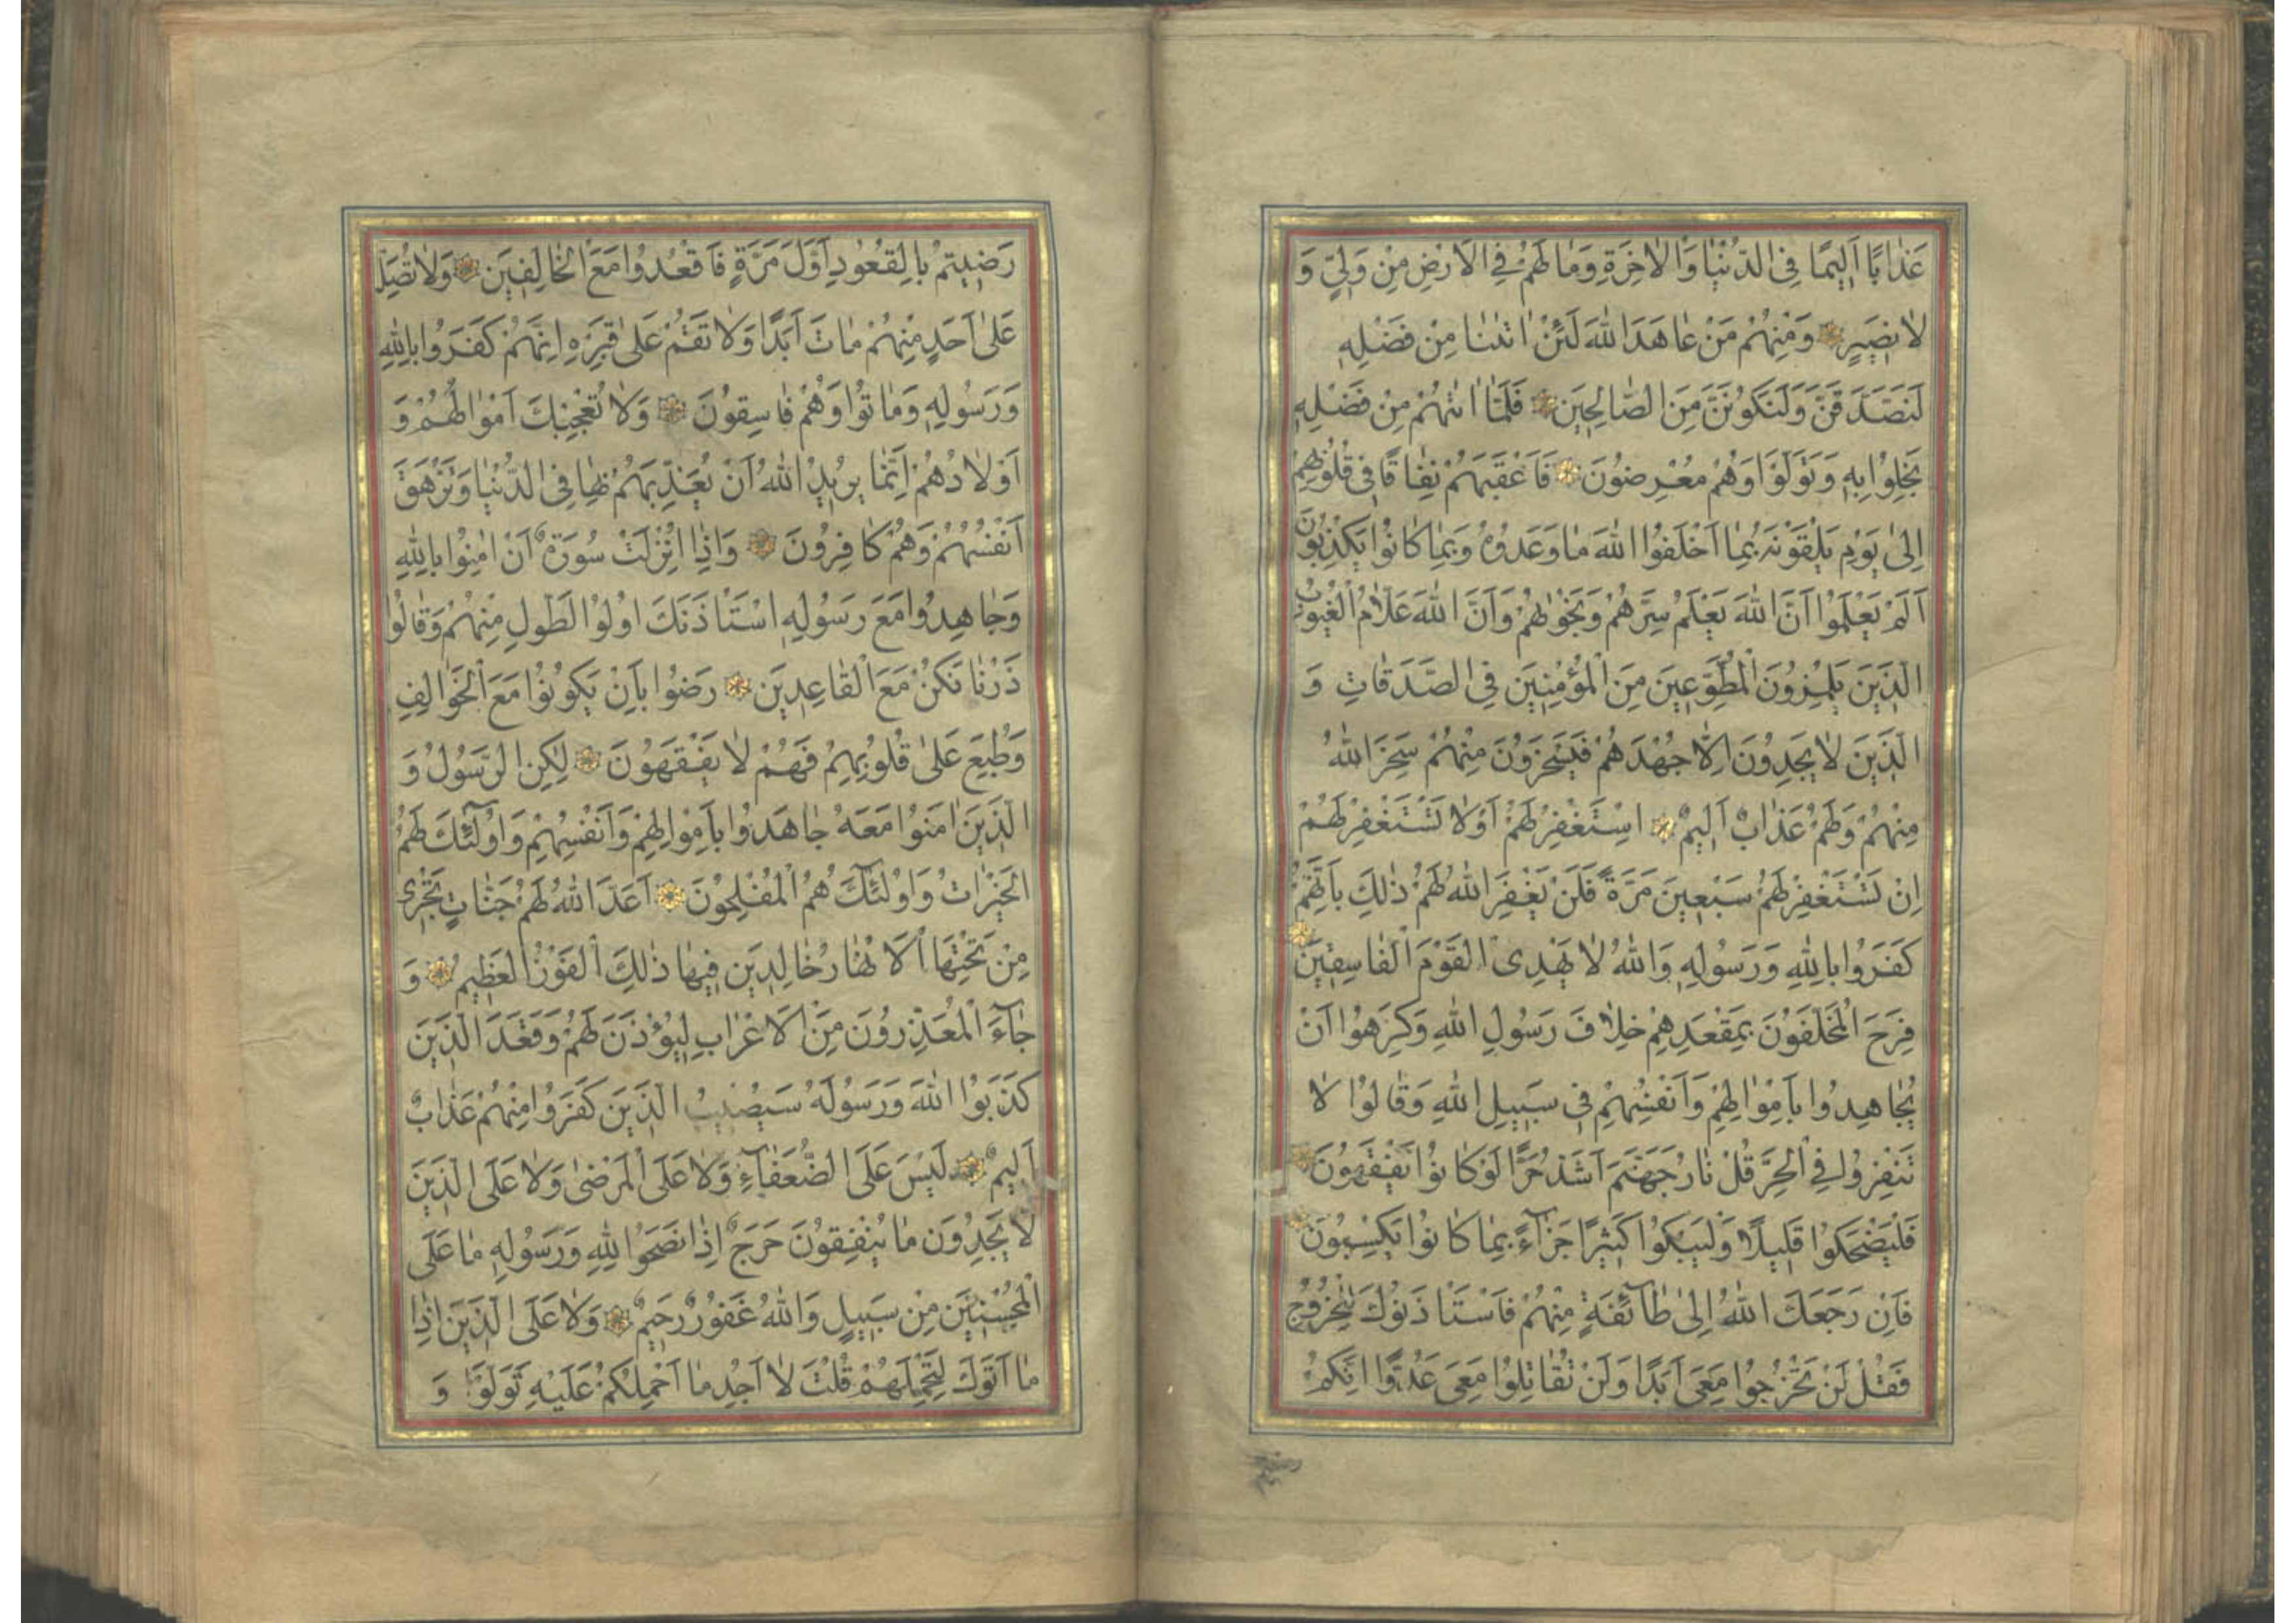 عَذَابًا اَلِيمًا فِى الدُّنْيَا وَالْاٰخِرَةِ وَمَا لَهُمْ فِى الْاَرْضِ مِنْ وَلِىٍّ وَ
لَا نَصِيرٍ وَمِنْهُمْ مَنْ عَاهَدَ اللّٰهَ لَئِنْ اٰتٰنَا مِنْ فَضْلِهِ
لَنَصَّدَّقَنَّ وَلَنَكُونَنَّ مِنَ الصَّالِحِينَ فَلَمَّا اٰتٰهُمْ مِنْ فَضْلِهِ
بَخِلُوا بِهِ وَتَوَلَّوْا وَهُمْ مُعْرِضُونَ فَاَعْقَبَهُمْ نِفَاقًا فِى قُلُوبِهِمْ
اِلٰى يَوْمِ يَلْقَوْنَهُ بِمَا اَخْلَفُوا اللّٰهَ مَا وَعَدُوهُ وَبِمَا كَانُوا يَكْذِبُونَ
اَلَمْ يَعْلَمُوا اَنَّ اللّٰهَ يَعْلَمُ سِرَّهُمْ وَنَجْوٰيهُمْ وَاَنَّ اللّٰهَ عَلَّامُ الْغُيُوبِ
الَّذِينَ يَلْمِزُونَ الْمُطَّوِّعِينَ مِنَ الْمُؤْمِنِينَ فِى الصَّدَقَاتِ وَ
الَّذِينَ لَا يَجِدُونَ اِلَّا جُهْدَهُمْ فَيَسْخَرُونَ مِنْهُمْ سَخِرَ اللّٰهُ
مِنْهُمْ وَلَهُمْ عَذَابٌ اَلِيمٌ اِسْتَغْفِرْ لَهُمْ اَوْ لَا تَسْتَغْفِرْ لَهُمْ
اِنْ تَسْتَغْفِرْ لَهُمْ سَبْعِينَ مَرَّةً فَلَنْ يَغْفِرَ اللّٰهُ لَهُمْ ذٰلِكَ بِاَنَّهُمْ
كَفَرُوا بِاللّٰهِ وَرَسُولِهِ وَاللّٰهُ لَا يَهْدِى الْقَوْمَ الْفَاسِقِينَ
فَرِحَ الْمُخَلَّفُونَ بِمَقْعَدِهِمْ خِلَافَ رَسُولِ اللّٰهِ وَكَرِهُوا اَنْ
يُجَاهِدُوا بِاَمْوَالِهِمْ وَاَنْفُسِهِمْ فِى سَبِيلِ اللّٰهِ وَقَالُوا لَا
تَنْفِرُوا فِى الْحَرِّ قُلْ نَارُ جَهَنَّمَ اَشَدُّ حَرًّا لَوْ كَانُوا يَفْقَهُونَ
فَلْيَضْحَكُوا قَلِيلًا وَلْيَبْكُوا كَثِيرًا جَزَاءً بِمَا كَانُوا يَكْسِبُونَ
فَاِنْ رَجَعَكَ اللّٰهُ اِلٰى طَائِفَةٍ مِنْهُمْ فَاسْتَأْذَنُوكَ لِلْخُرُوجِ
فَقُلْ لَنْ تَخْرُجُوا مَعِىَ اَبَدًا وَلَنْ تُقَاتِلُوا مَعِىَ عَدُوًّا اِنَّكُمْ
رَضِيتُمْ بِالْقُعُودِ اَوَّلَ مَرَّةٍ فَاقْعُدُوا مَعَ الْخَالِفِينَ وَلَا تُصَلِّ
عَلٰى اَحَدٍ مِنْهُمْ مَاتَ اَبَدًا وَلَا تَقُمْ عَلٰى قَبْرِهِ اِنَّهُمْ كَفَرُوا بِاللّٰهِ
وَرَسُولِهِ وَمَاتُوا وَهُمْ فَاسِقُونَ وَلَا تُعْجِبْكَ اَمْوَالُهُمْ وَ
اَوْلَادُهُمْ اِنَّمَا يُرِيدُ اللّٰهُ اَنْ يُعَذِّبَهُمْ بِهَا فِى الدُّنْيَا وَتَزْهَقَ
اَنْفُسُهُمْ وَهُمْ كَافِرُونَ وَاِذَا اُنْزِلَتْ سُورَةٌ اَنْ اٰمِنُوا بِاللّٰهِ
وَجَاهِدُوا مَعَ رَسُولِهِ اسْتَأْذَنَكَ اُولُوا الطَّوْلِ مِنْهُمْ وَقَالُوا
ذَرْنَا نَكُنْ مَعَ الْقَاعِدِينَ رَضُوا بِاَنْ يَكُونُوا مَعَ الْخَوَالِفِ
وَطُبِعَ عَلٰى قُلُوبِهِمْ فَهُمْ لَا يَفْقَهُونَ لٰكِنِ الرَّسُولُ وَ
الَّذِينَ اٰمَنُوا مَعَهُ جَاهَدُوا بِاَمْوَالِهِمْ وَاَنْفُسِهِمْ وَاُولٰئِكَ لَهُمُ
الْخَيْرَاتُ وَاُولٰئِكَ هُمُ الْمُفْلِحُونَ اَعَدَّ اللّٰهُ لَهُمْ جَنَّاتٍ تَجْرِى
مِنْ تَحْتِهَا الْاَنْهَارُ خَالِدِينَ فِيهَا ذٰلِكَ الْفَوْزُ الْعَظِيمُ وَ
جَاءَ الْمُعَذِّرُونَ مِنَ الْاَعْرَابِ لِيُؤْذَنَ لَهُمْ وَقَعَدَ الَّذِينَ
كَذَبُوا اللّٰهَ وَرَسُولَهُ سَيُصِيبُ الَّذِينَ كَفَرُوا مِنْهُمْ عَذَابٌ
اَلِيمٌ لَيْسَ عَلَى الضُّعَفَاءِ وَلَا عَلَى الْمَرْضٰى وَلَا عَلَى الَّذِينَ
لَا يَجِدُونَ مَا يُنْفِقُونَ حَرَجٌ اِذَا نَصَحُوا لِلّٰهِ وَرَسُولِهِ مَا عَلَى
الْمُحْسِنِينَ مِنْ سَبِيلٍ وَاللّٰهُ غَفُورٌ رَحِيمٌ وَلَا عَلَى الَّذِينَ اِذَا
مَا اَتَوْكَ لِتَحْمِلَهُمْ قُلْتَ لَا اَجِدُ مَا اَحْمِلُكُمْ عَلَيْهِ تَوَلَّوْا وَ